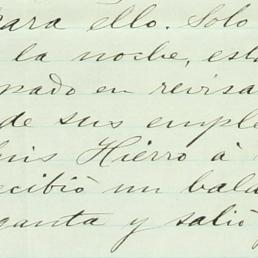 para ello. Solo
la noche, est
pado en revisa
de sus emple
uis Hierro à
ecibió un bala
ganta y salió